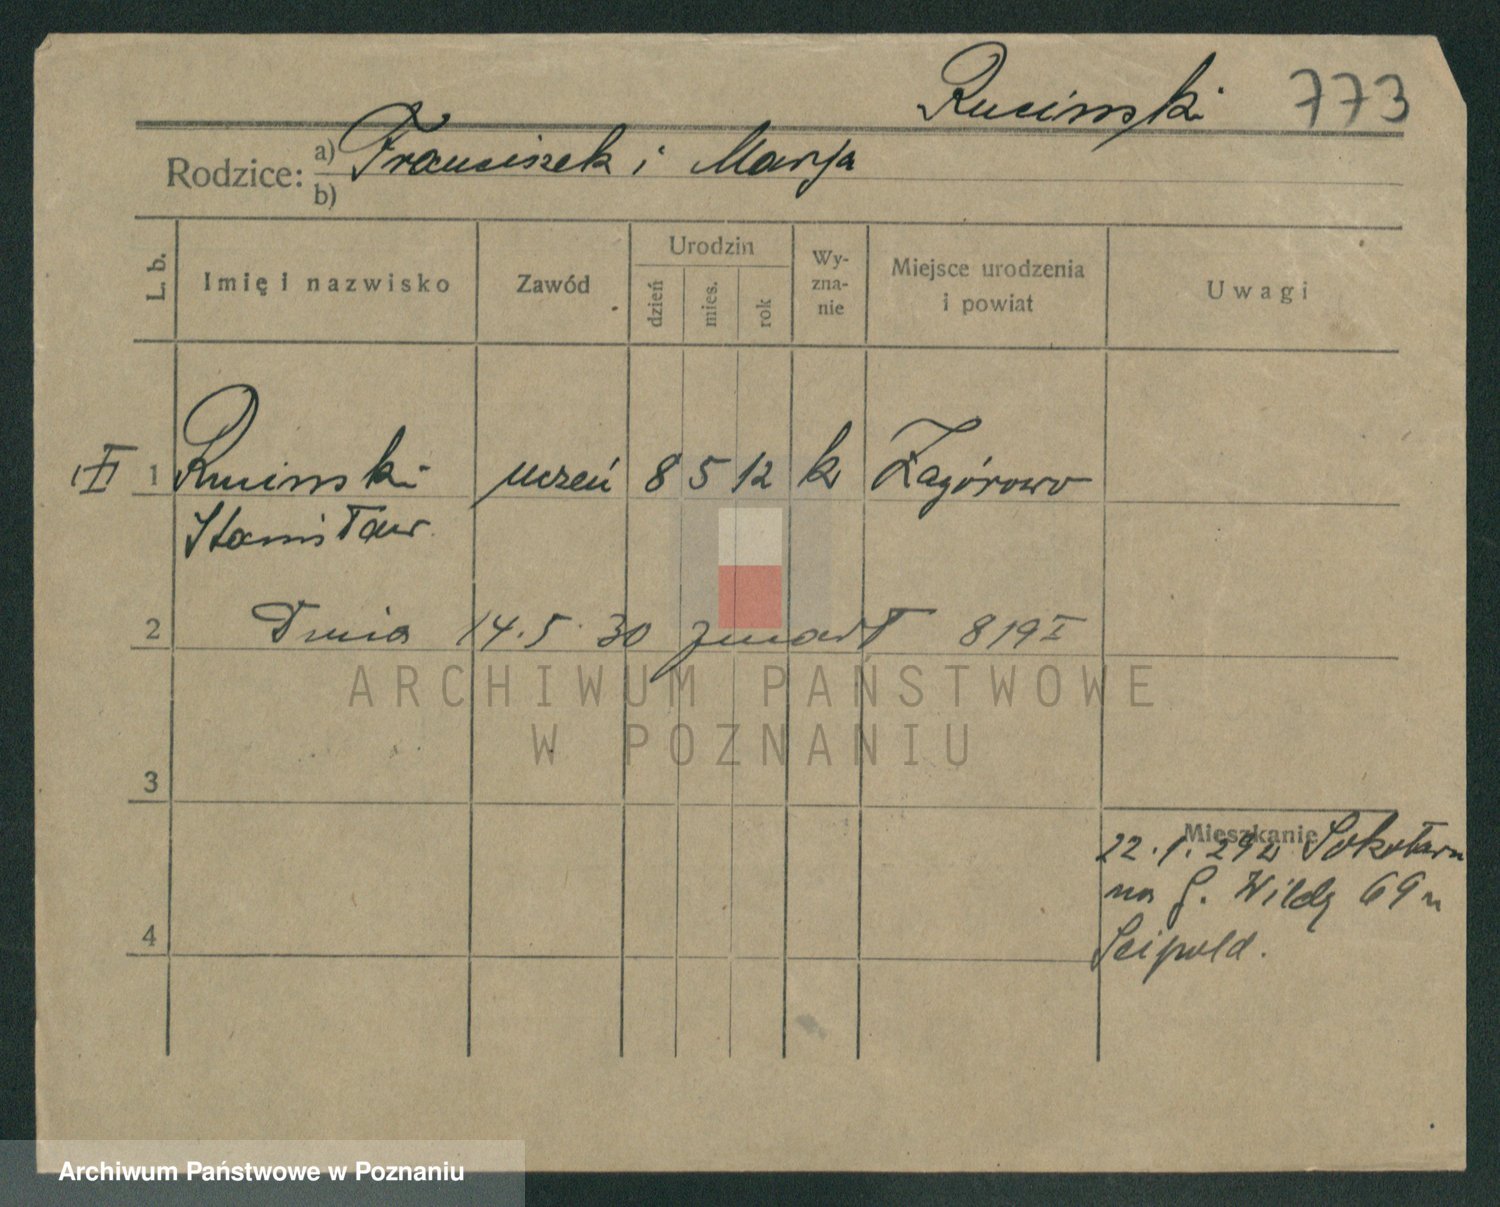 Rucinski 773
Rodzice: a) Franciszek i Marja
b)
L. b. Imię i nazwisko Zawód Urodzin dzień mies. rok Wyznanie Miejsce urodzenia i powiat Uwagi
1 Rucinski uczeń 8 5 12 k Zagórowo
Stanisław
2 Dnia 14.5.30 zmarł 819 I
ARCHIWUM PAŃSTWOWE
W POZNANIU
3
Mieszkanie
22.1.29 z Sokołowa
na G. Wildę 69 u
4
Seipold.
Archiwum Państwowe w Poznaniu